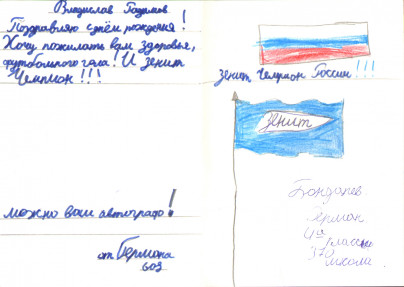 Владислав Радимов
Поздравляю с днём рождения!
Хочу пожилать вам здоровья,
футбольного гола! И зенит
Чемпион!!!
можно ваш автограф!
от Германа
603
Зенит Чемпион России!!!
Зенит
Бондарев
Герман
4а
класс
370
школа